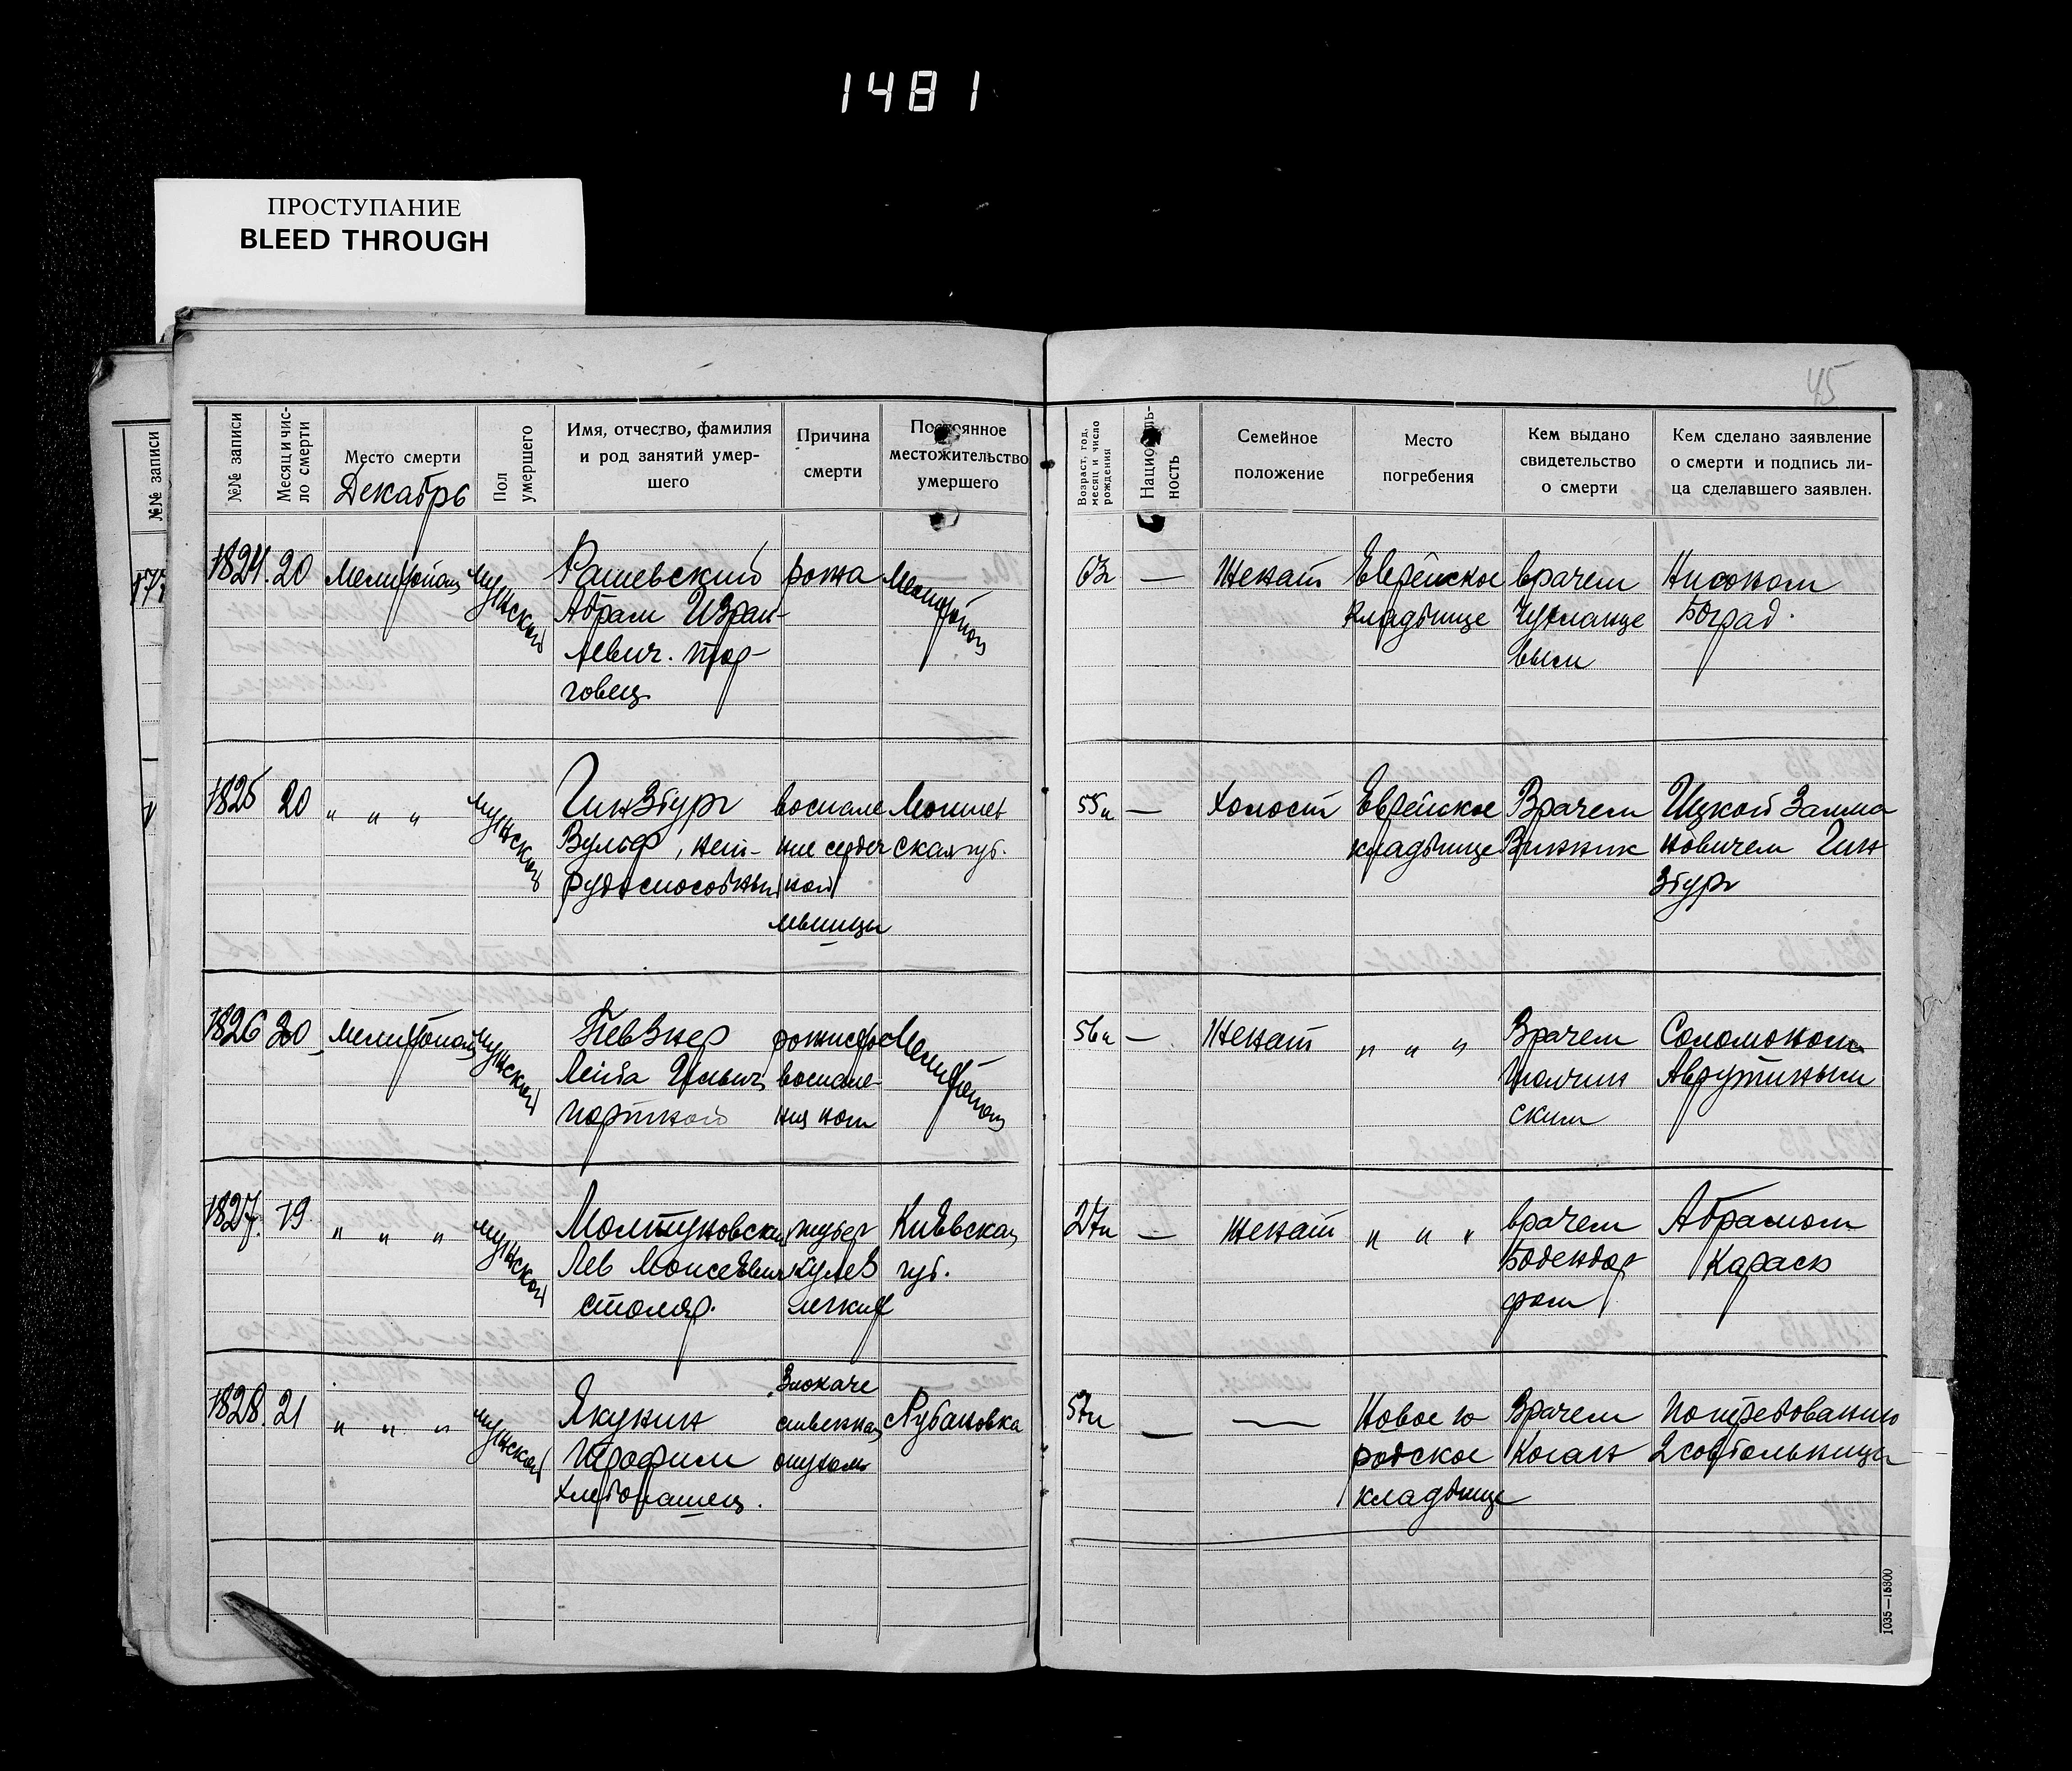 1481
ПРОСТУПАНИЕ
BLEED THROUGH
45
№№ записи
№№ записи
Месяц и чис-
ло смерти
Место смерти
Декабрь
Пол
умершего
Имя, отчество, фамилия
и род занятий умер-
шего
Причина
смерти
Постоянное
местожительство
умершего
Возраст, год,
месяц и число
рождения
Националь-
ность
Семейное
положение
Место
погребения
Кем выдано
свидетельство
о смерти
Кем сделано заявление
о смерти и подпись ли-
ца сделавшего заявлен.
1824. 20 Мелитополь мужской
Рашевский
Абрам Израи-
левич. тор-
говец
рожа
Мелитополь
63
—
Женат
Еврейское
кладбище
врачем
выми
Нисоном
Боград.
1825 20 " " " мужской
Гинзбург
Вульф, нет-
рудоспособный
воспале
ние сердеч
ной
мышцы
Могилев
ская губ.
55л
—
холост
Еврейское
кладбище
Врачем
Винник
Ицкой Залма
новичем Гин
збург
1826 20 Мелитополь мужской
Певзнер
Лейба
портной
рожистое
воспале-
ния ног
Мелитополь
56л
—
Женат
" " "
Врачем
ским
Соломоном
Аврутиным
1827. 19 " " " мужской
Лев Моисеевич
столяр.
тубер
кулез
легких
Киевская
губ.
27л
—
женат
" " "
врачем
Бодендор
фом
Абрамом
Карась
1828. 21 " " " мужской
Якунин
Трофим
хлебопашец.
Злокаче
ственная
опухоль
Рубановка
57л
—
—
Новое го
родское
кладбище
Врачем
Коган
По требованию
2 совбольницы
1035—15300